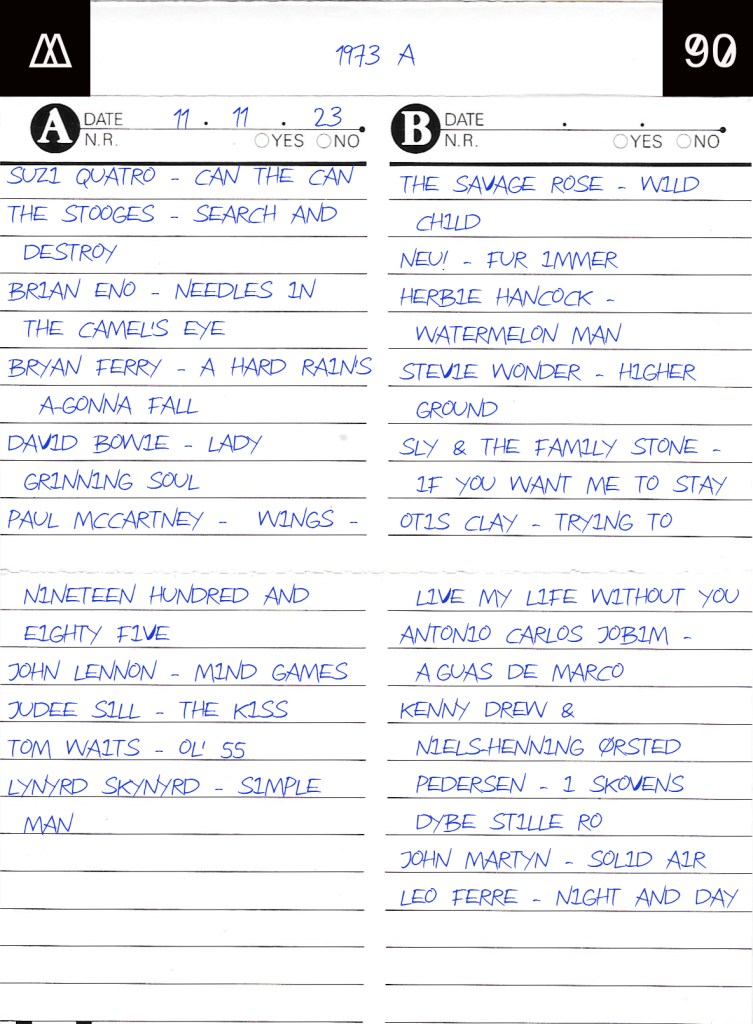 1973 A
90
A DATE 11 . 11 . 23
N.R. YES NO
SUZI QUATRO - CAN THE CAN
THE STOOGES - SEARCH AND
DESTROY
BRIAN ENO - NEEDLES IN
THE CAMEL'S EYE
BRYAN FERRY - A HARD RAIN'S
A-GONNA FALL
DAVID BOWIE - LADY
GRINNING SOUL
PAUL MCCARTNEY - WINGS -
NINETEEN HUNDRED AND
EIGHTY FIVE
JOHN LENNON - MIND GAMES
JUDEE SILL - THE KISS
TOM WAITS - OL' 55
LYNYRD SKYNYRD - SIMPLE
MAN
B DATE . .
N.R. YES NO
THE SAVAGE ROSE - WILD
CHILD
NEU! - FUR IMMER
HERBIE HANCOCK -
WATERMELON MAN
STEVIE WONDER - HIGHER
GROUND
SLY & THE FAMILY STONE -
IF YOU WANT ME TO STAY
OTIS CLAY - TRYING TO
LIVE MY LIFE WITHOUT YOU
ANTONIO CARLOS JOBIM -
AGUAS DE MARCO
KENNY DREW &
NIELS-HENNING ØRSTED
PEDERSEN - I SKOVENS
DYBE STILLE RO
JOHN MARTYN - SOLID AIR
LEO FERRE - NIGHT AND DAY